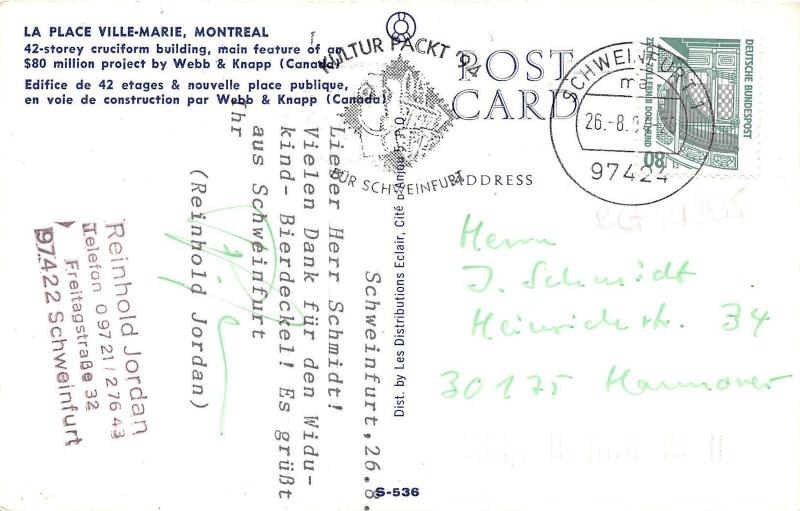 LA PLACE VILLE-MARIE, MONTREAL
42-storey cruciform building, main feature of an
$80 million project by Webb & Knapp (Canada)
Edifice de 42 etages & nouvelle place publique,
en voie de construction par Webb & Knapp (Canada)
POST
CARD
ADDRESS
KULTUR PACKT '94
FÜR SCHWEINFURT
SCHWEINFURT 1
ma
26.-8.9
97424
DEUTSCHE BUNDESPOST
ZECHE ZOLLERN II DORTMUND
80
Schweinfurt, 26.8.
Lieber Herr Schmidt!
Vielen Dank für den Widu-
kind- Bierdeckel! Es grüßt
aus Schweinfurt
Ihr
(Reinhold Jordan)
Reinhold Jordan
Telefon 0 97 21 / 2 76 43
Freitagstraße 32
97422 Schweinfurt
Dist. by Les Distributions Eclair, Cité d'Anjou 5, P.Q.
S-536
Herrn
J. Schmidt
Heinrichstr. 34
30175 Hannover